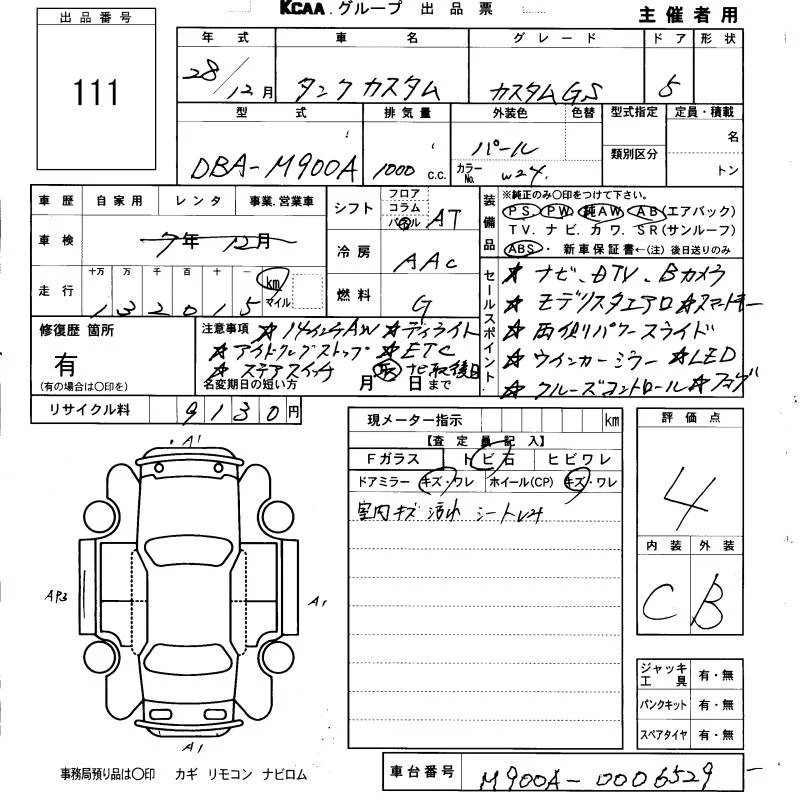 KCAA.グループ 出品票
主催者用
出品番号
111
年式 車名 グレード ドア 形状
28/12月 タンクカスタム カスタムGS 5
型式 排気量 外装色 色替 型式指定 定員・積載
DBA-M900A 1000 c.c. パール 名
カラーNo. W24 類別区分 トン
車歴 自家用 レンタ 事業.営業車
車検 7年 12月
走行 十万 万 千 百 十 一 km マイル
132015
シフト フロア コラム パネル AT
冷房 AAC
燃料 G
装備品
※純正のみ○印をつけて下さい。
PS PW 純AW AB(エアバック)
TV. ナビ. カワ. SR(サンルーフ)
ABS・新車保証書←(注)後日送りのみ
セールスポイント
★ナビ、DTV、Bカメラ
★モデリスタエアロ★スマートキー
★両側パワースライド
★ウインカーミラー★LED
★クルーズコントロール★フォグ
修復歴 箇所
有
(有の場合は○印を)
注意事項 ★14インチAW★デイライト
★アイドルグストップ★ETC
★ステアスイッチ ナビ取後日
名変期日の短い方 月 日まで
リサイクル料 9130円
現メーター指示 km
【査定員記入】
Fガラス トビ石 ヒビワレ
ドアミラー キズ・ワレ ホイール(CP) キズ・ワレ
室内キズ 汚れ シートレス
評価点
4
内装 外装
C B
A1
AP3
A1
A1
ジャッキ工具 有・無
パンクキット 有・無
スペアタイヤ 有・無
事務局預り品は○印 カギ リモコン ナビロム
車台番号 M900A-0006529